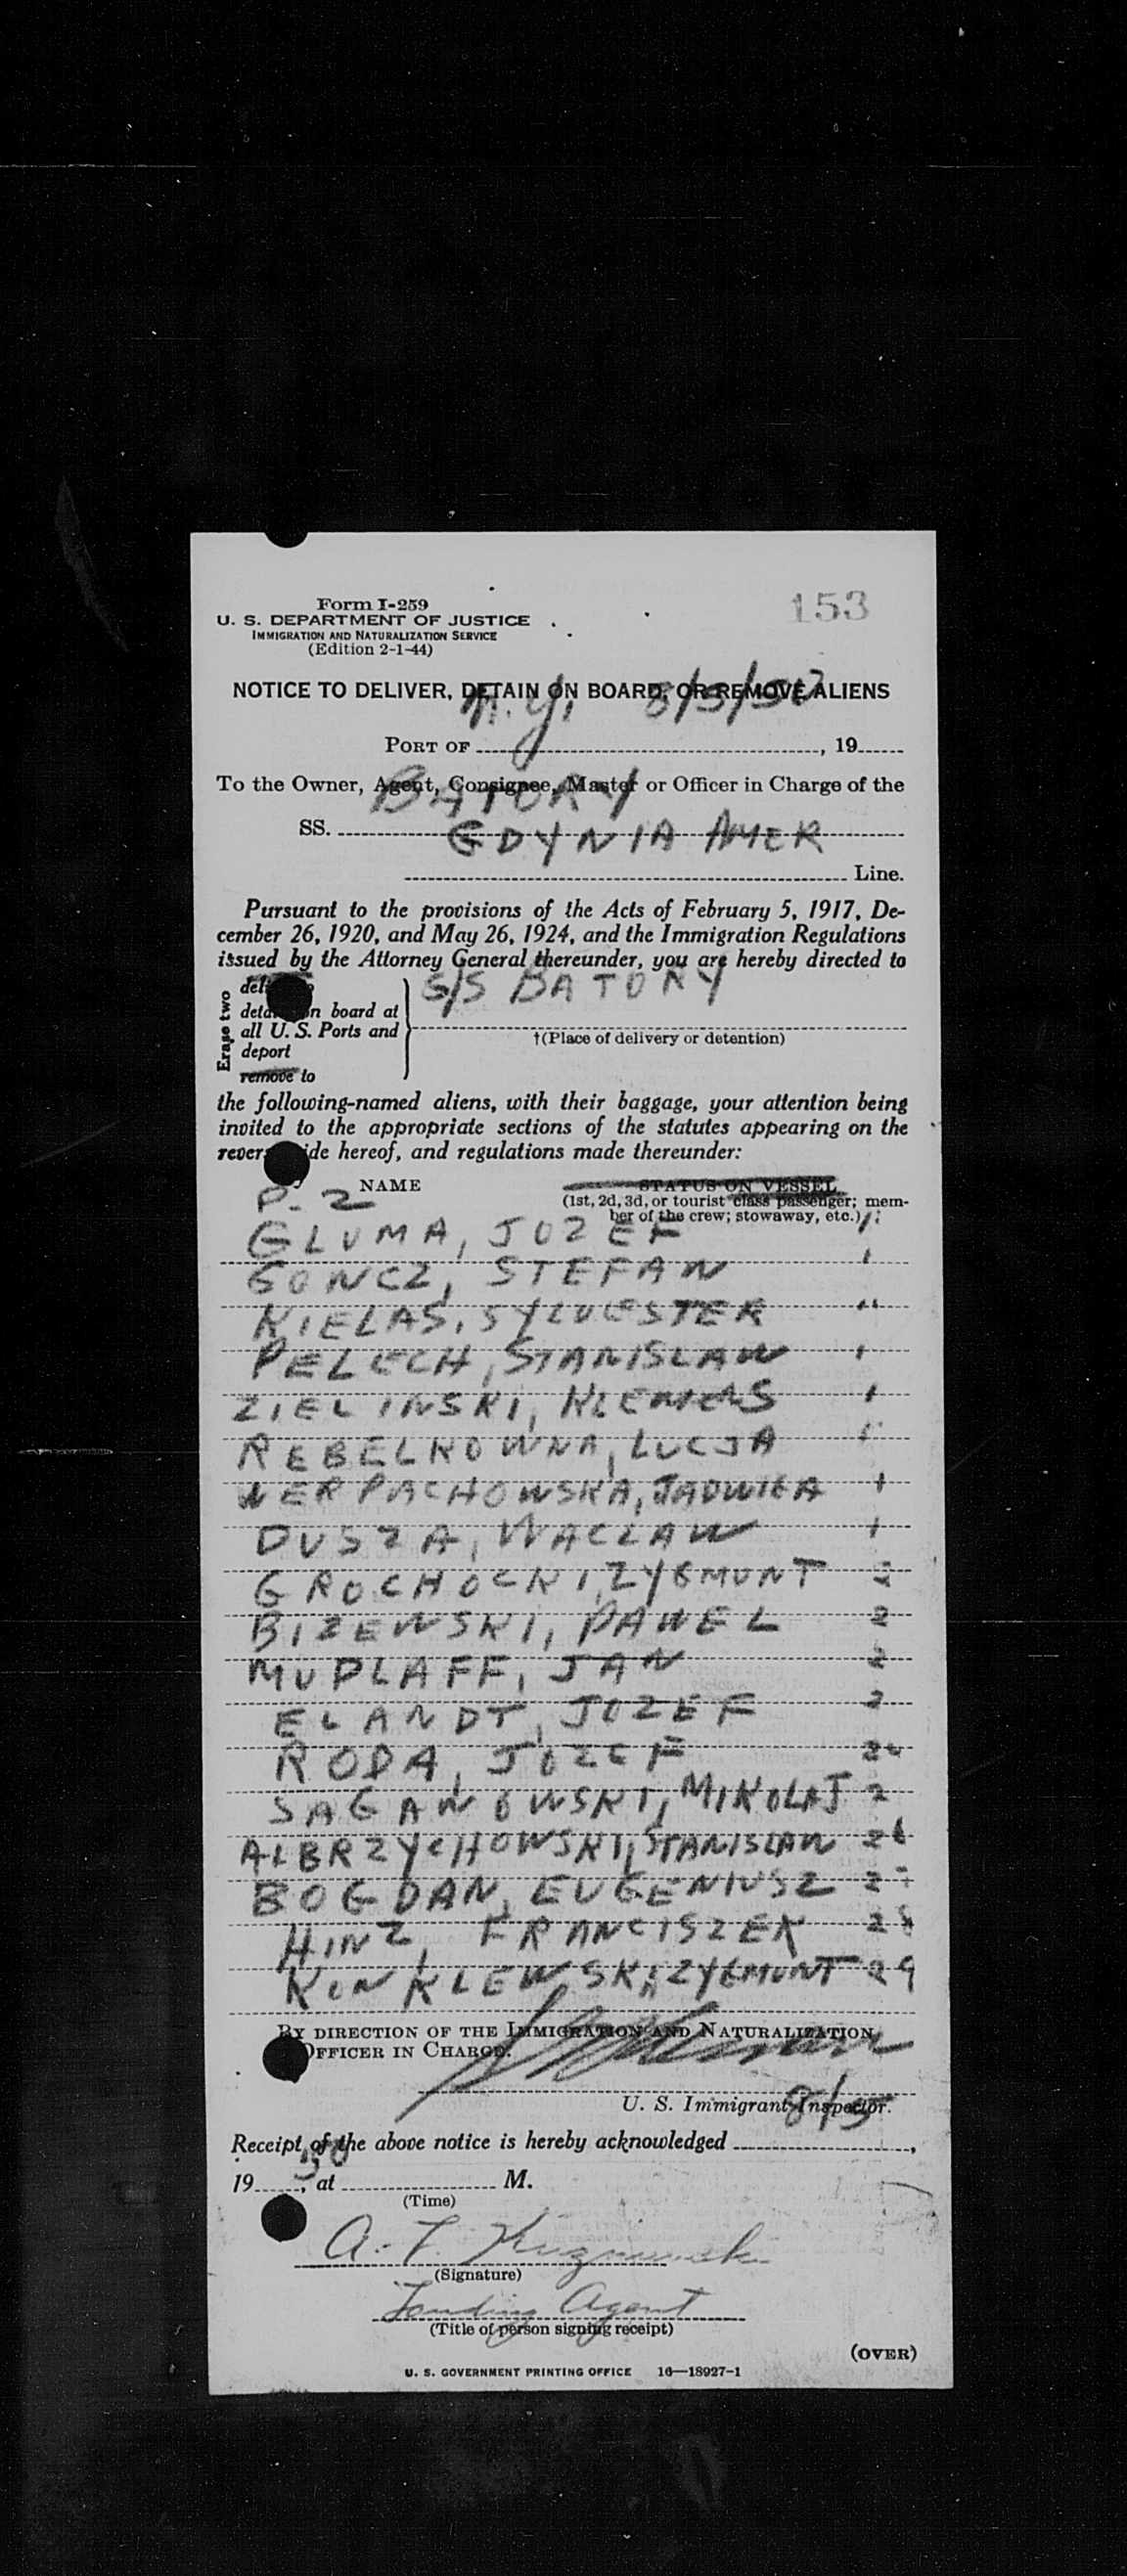 153
Form I-259
U. S. DEPARTMENT OF JUSTICE
IMMIGRATION AND NATURALIZATION SERVICE
(Edition 2-1-44)
NOTICE TO DELIVER, DETAIN ON BOARD, OR REMOVE ALIENS
N.Y, 8/5/50
PORT OF , 19
To the Owner, Agent, Consignee, Master or Officer in Charge of the
BATORY
SS.
GDYNIA AMER
Line.
Pursuant to the provisions of the Acts of February 5, 1917, De-
cember 26, 1920, and May 26, 1924, and the Immigration Regulations
issued by the Attorney General thereunder, you are hereby directed to
S/S BATORY
Erase two
on board at
all U. S. Ports and
deport
remove to
†(Place of delivery or detention)
the following-named aliens, with their baggage, your attention being
invited to the appropriate sections of the statutes appearing on the
hereof, and regulations made thereunder:
NAME
STATUS ON VESSEL
P. 2
(1st, 2d, 3d, or tourist class passenger; mem-
ber of the crew; stowaway, etc.)
GLUMA, JOZEF
GONCZ, STEFAN
KIELAS, SYLVESTER
PELECH, STANISLAW
ZIELINSKI, KLEMENS
REBELKOWNA, LUCJA
WERPACHOWSKA, JADWIGA
DUSZA, WACLAW
GROCHOCKI, ZYGMUNT
BIZEWSKI, PAWEL
MUDLAFF, JAN
ELANDT, JOZEF
RODA, JOZEF
SAGANOWSKI, MIKOLAJ
ALBRZYCHOWSKI, STANISLAW 26
BOGDAN, EUGENIUSZ 27
HINZ, FRANCISZEK 28
KONKLEWSKI, ZYGMUNT 29
BY DIRECTION OF THE IMMIGRATION AND NATURALIZATION
OFFICER IN CHARGE.
U. S. Immigrant Inspector.
8/5
Receipt of the above notice is hereby acknowledged ,
19 50, at M.
(Time)
A. T.
(Signature)
Agent
(Title of person signing receipt)
(OVER)
U. S. GOVERNMENT PRINTING OFFICE 16—18927-1